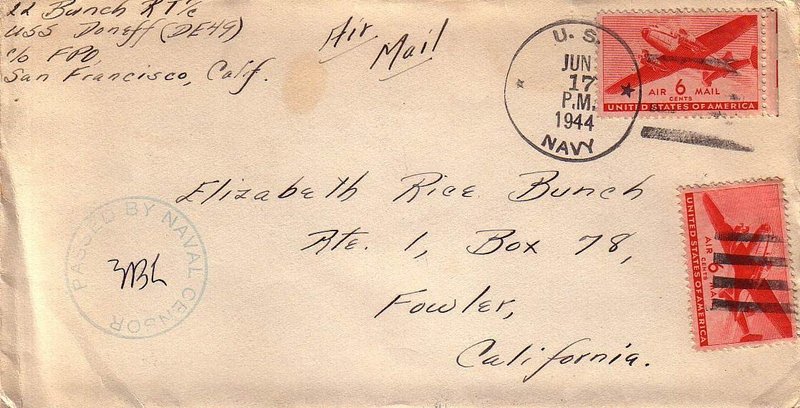 LL Bunch RT1/c
USS Doneff (DE49)
c/o FPO,
San Francisco, Calif.
Air
Mail
U. S.
JUN
17
P.M.
1944
NAVY
AIR 6 MAIL
CENTS
UNITED STATES OF AMERICA
Elizabeth Rice Bunch
Rte. 1, Box 78,
Fowler,
California.
PASSED BY NAVAL CENSOR
AIR 6 MAIL
UNITED STATES OF AMERICA